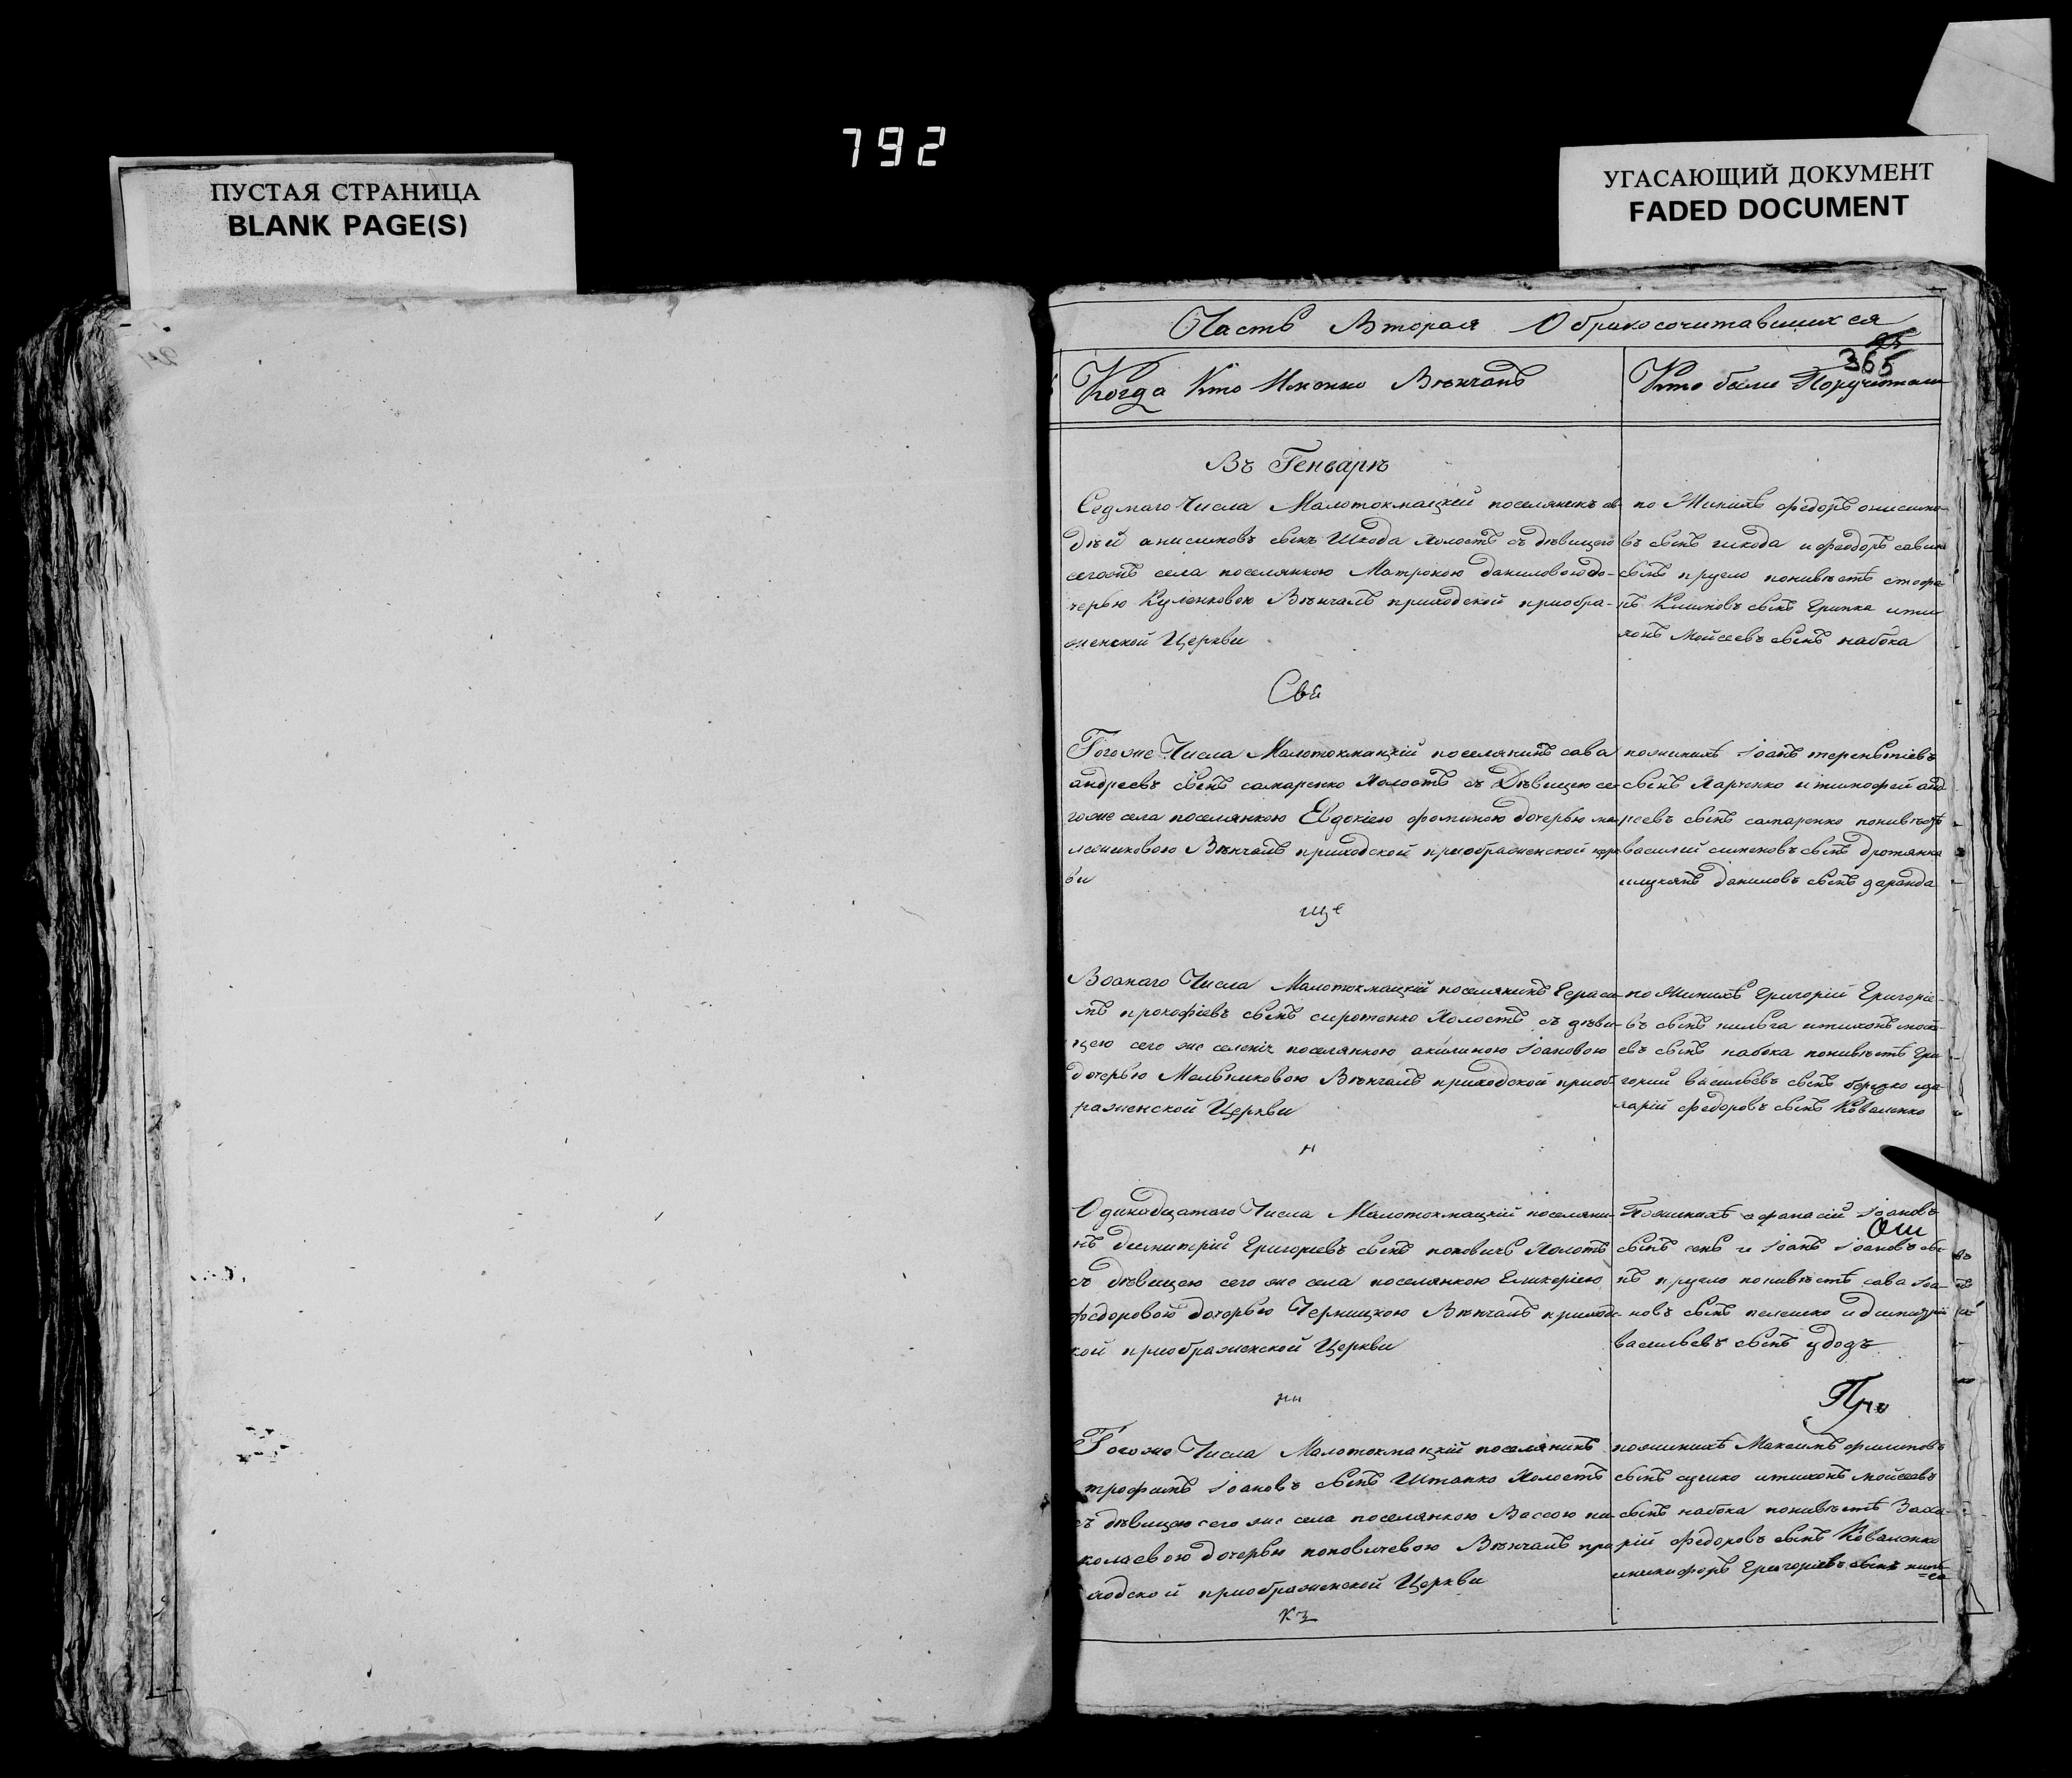 792
ПУСТАЯ СТРАНИЦА
BLANK PAGE(S)
УГАСАЮЩИЙ ДОКУМЕНТ
FADED DOCUMENT
Часть Вторая О бракосочитавшихся
365
Когда Кто Имянно Венчанъ
Кто были Поручители
Въ Генваре
Седмаго Числа Малотокмацкій поселянинъ ав-
дѣй анисимовъ сынъ Шкода Холостъ съ дѣвицею
сегожъ села поселянкою Матроною даниловою до-
черью Куленковою Вѣнчалъ приходской приобра-
женской Церкви
по Женихѣ федоръ онисимо-
въ сынъ шкода и феодоръ савинъ
сынъ пругло поневѣстѣ стефа-
нъ Климовъ сынъ Грипка ити-
хонъ Мойсеевъ сынъ набока
Свя
Тогоже Числа Малотокмацкій поселянинъ сава
андреевъ сынъ самаренко Холостъ съ Дѣвицею се-
гоже села поселянкою Евдокіею фоминою дочерью ма-
лешиковою Вѣнчалъ приходской приображенской церк
ви
поженихѣ Іоанъ терентіевъ
сынъ Харченко и тимофей анд
реевъ сынъ самаренко поневѣстѣ
василій сименовъ сынъ дротянка
илукянъ даниловъ сынъ даранда
ще
Восмаго Числа Малотокмацкій поселянинъ Гераси-
мъ прокофіевъ сынъ сиротенко Холостъ съ дѣви-
цею сего же селенія поселянкою акилиною Іоановою
дочерью Мельниковою Вѣнчалъ приходской приоб-
раженской Церкви
по Женихѣ Григорій Григоріе-
въ сынъ пильга итихонъ мойсе-
евъ сынъ набока поневѣстѣ Гри
горий васильевъ сынъ иза-
харій федоровъ сынъ Коваленко
н
Одинадцатого Числа Малотокмацкій поселяни-
нъ димитрій Григоріевъ сынъ поповичъ Холостъ
съ дѣвицею сего же села поселянкою Гликеріею
федоровою дочерью Черницкою Вѣнчалъ приходс
кой приображенской Церкви
Поженихѣ афанасій Іоановъ
Ош
сынъ сенъ и Іоанъ Іоановъ сы-
нъ пругло поневѣстѣ сава Іоа-
новъ сынъ пелешко и димитрій
васильевъ сынъ удодъ
ни
Про
Тогоже Числа Малотокмацкій поселянинъ
трофимъ Іоановъ сынъ Штанко Холостъ
съ дѣвицею сего же села поселянкою Вассою ни-
колаевою дочерью поповичевою Вѣнчалъ при
ходской приображенской Церкви
поженихѣ Максимъ филиповъ
сынъ сушко итихонъ мойсеевъ
сынъ набока поневѣстѣ Заха-
рій федоровъ сынъ Коваленко
иникифоръ Григоріевъ сынъ
къ